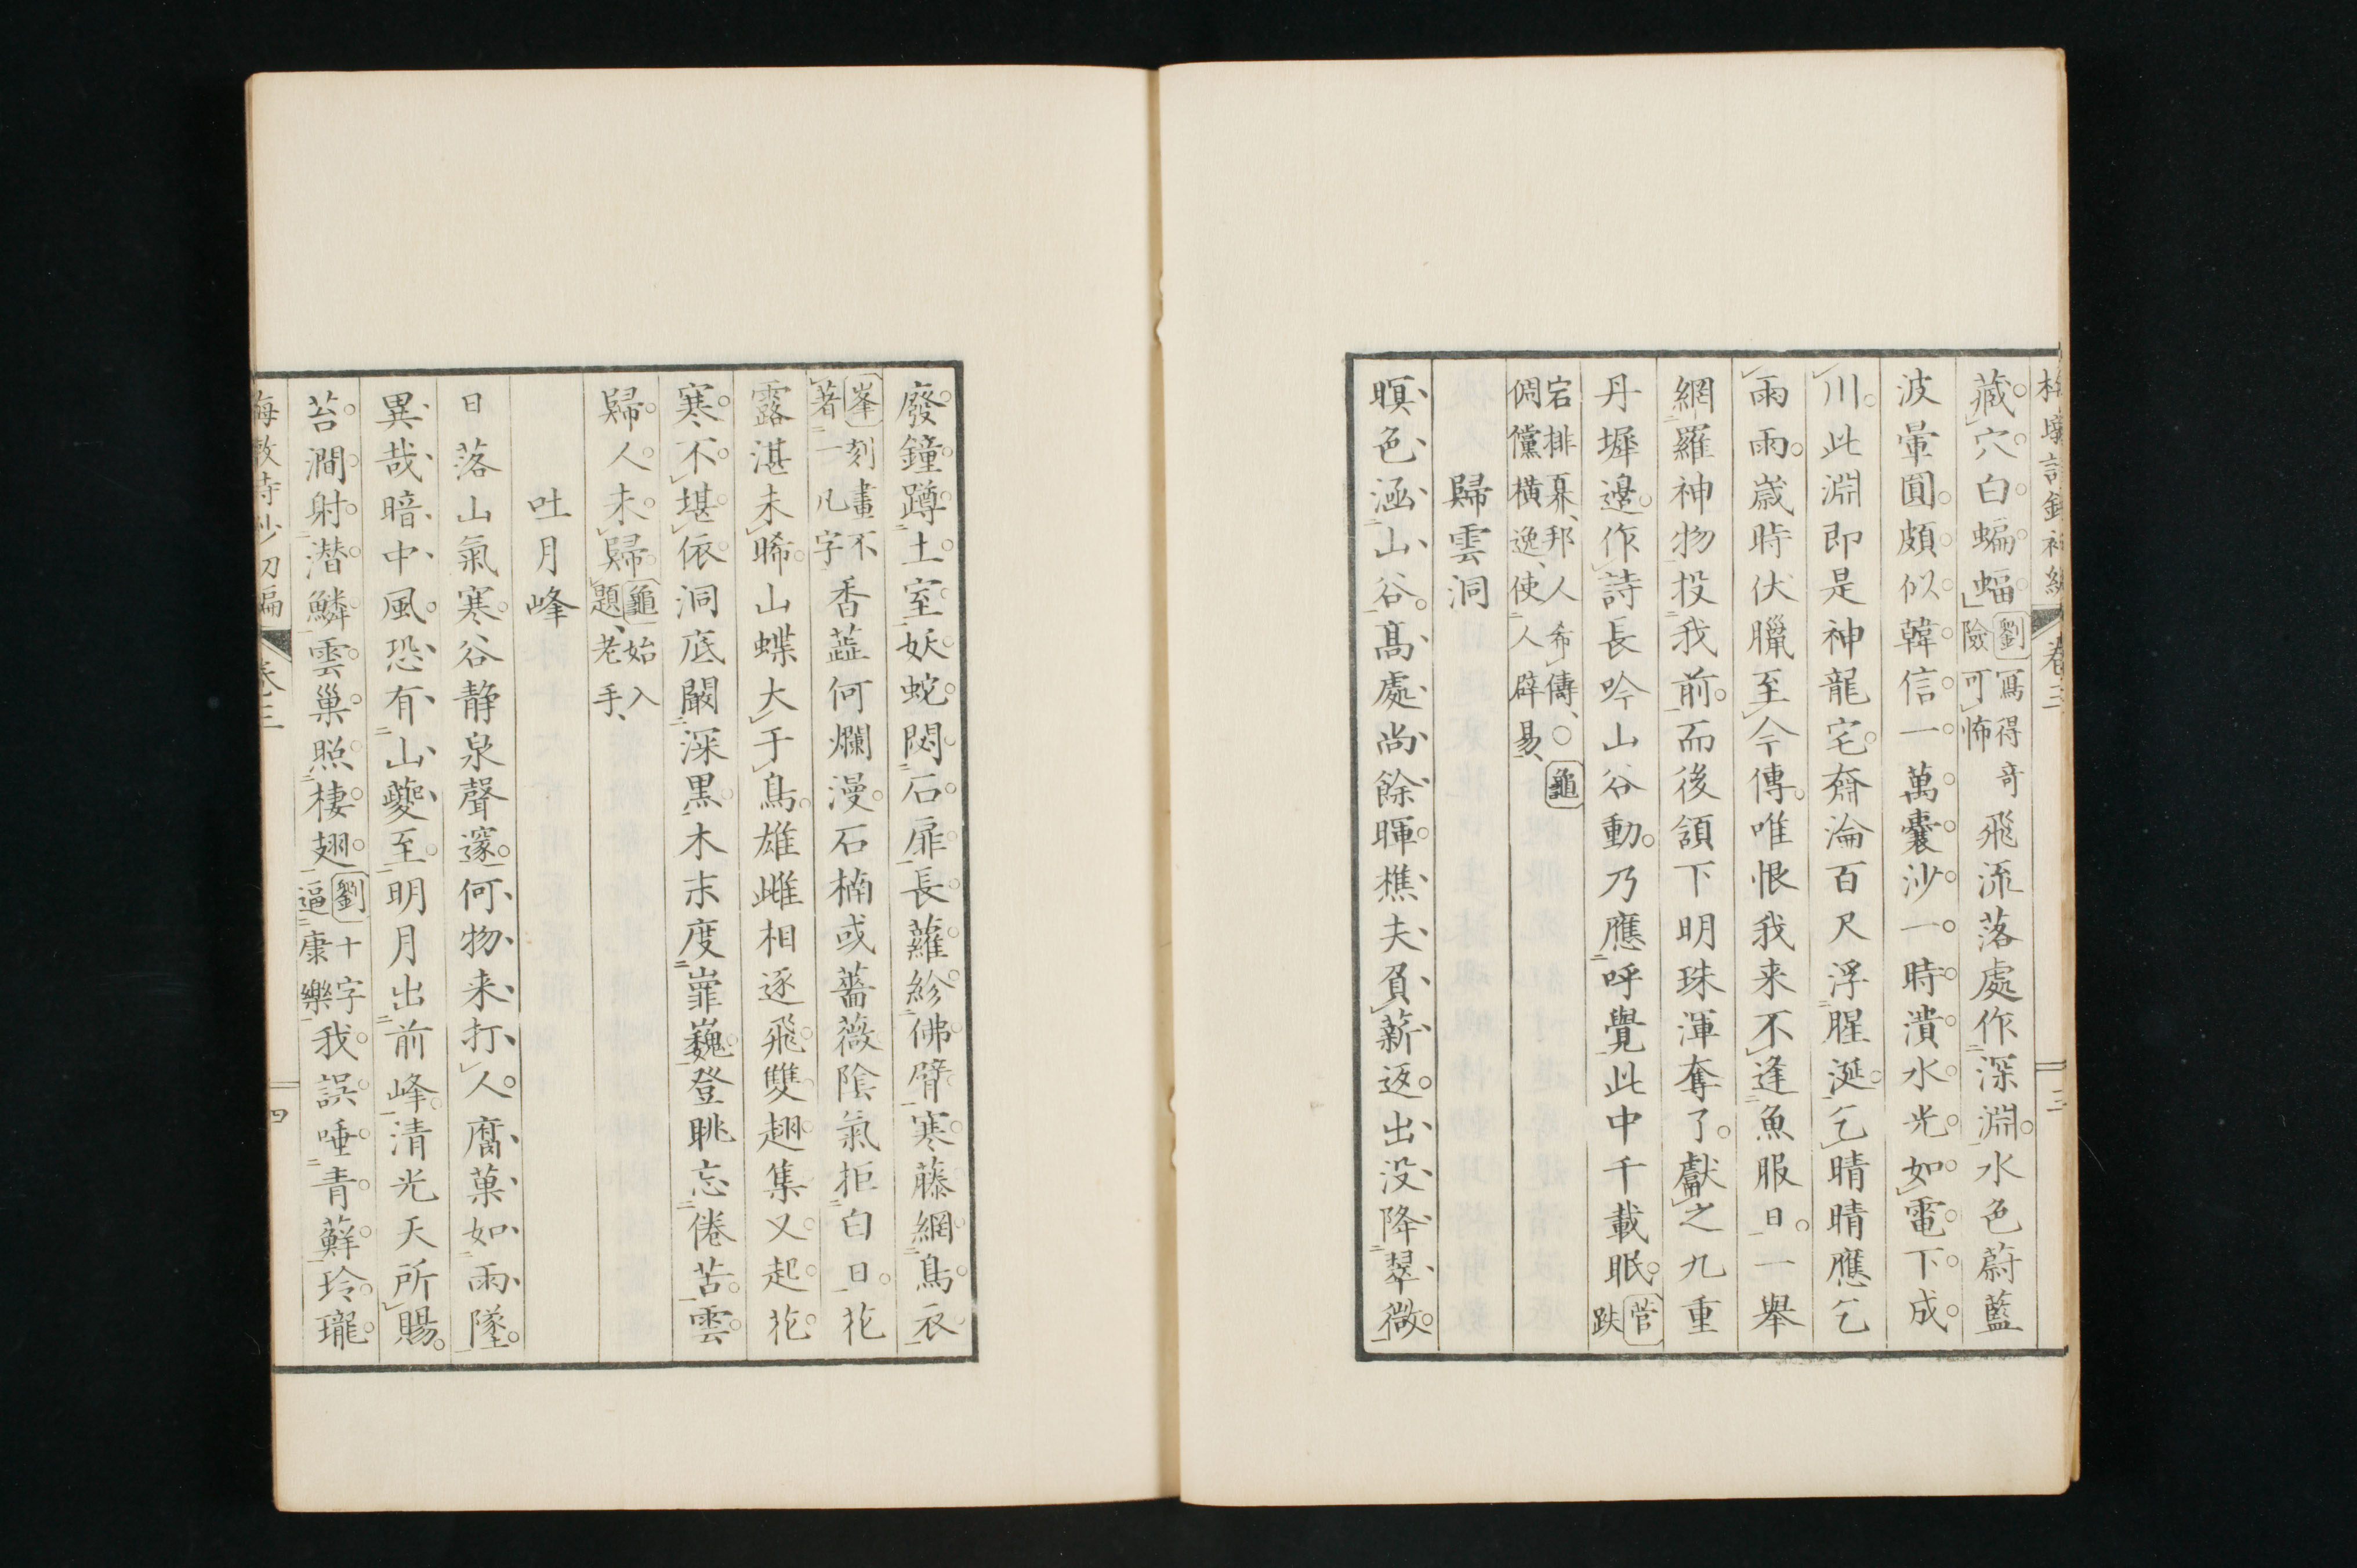 藏穴白蝙蝠劉寫得奇險可怖飛流落處作深淵水色蔚藍
波暈圓頗似韓信一萬囊沙一時潰水光如電下成
川此淵即是神龍宅奫淪百尺浮腥涎乞晴晴應乞
雨雨歳時伏臘至今傳唯恨我来不逢魚服日一舉
網羅神物投我前而後頷下明珠渾奪了獻之九重
丹墀邉作詩長吟山谷動乃應呼覺此中千載眠菅跌
宕排奡邦人希傳○龜倜儻橫逸使人辟易
歸雲洞
暝色涵山谷髙處尚餘暉樵夫負薪返出没降翠微
廢鐘蹲土室妖蛇閟石扉長蘿紾佛臂寒藤網鳥衣
峯刻畫不著一凡字香蕋何爛漫石楠或薔薇陰氣拒白日花
露湛未晞山蝶大于鳥雄雌相逐飛雙翅集又起花
寒不堪依洞底闞深黒木末度嶵巍登眺忘倦苦雲
歸人未歸龜始入題老手
吐月峰
日落山氣寒谷静泉聲邃何物来打人腐菓如雨墜
異哉暗中風恐有山夔至明月出前峰清光天所賜
苔澗射潜鱗雲巢照棲翅劉十字逼康樂我誤唾青蘚玲瓏
卷三
四